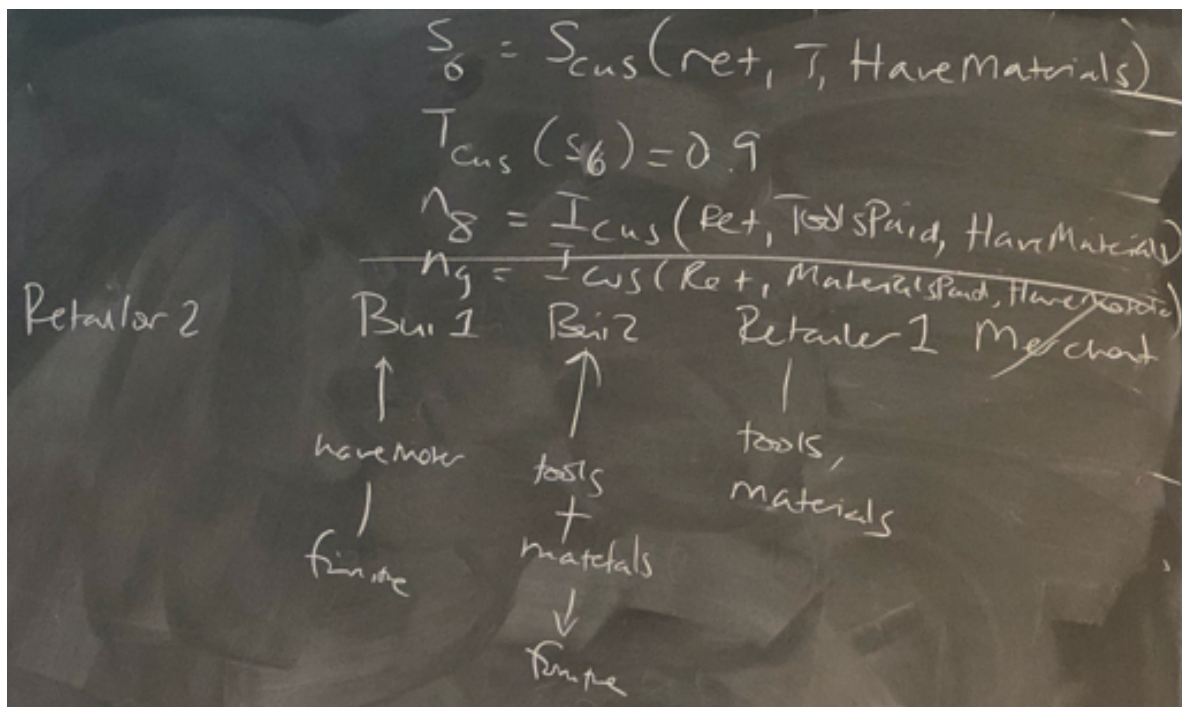 S6 = Scus(ret, T, HaveMaterials)
Tcus (s6) = 0.9
n8 = Icus (Ret, ToolsPaid, HaveMaterials)
n9 = Icus (Ret, MaterialsPaid,
Retailor 2 Bui 1 Bui 2 Retailer 1 Merchant
havemater tools tools,
+ materials
materials